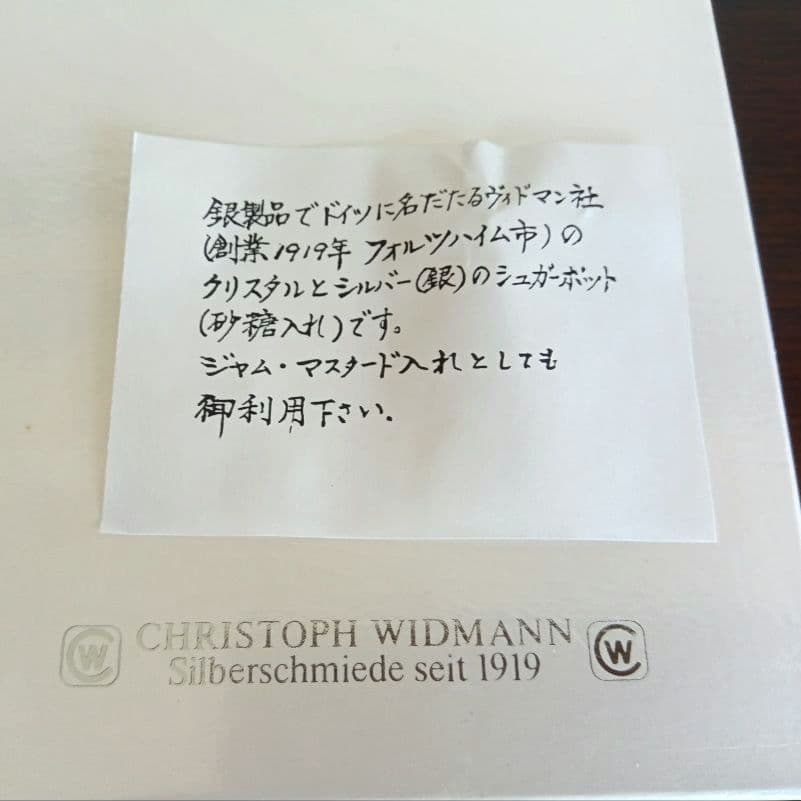 銀製品でドイツに名だたるヴィドマン社
(創業1919年 フォルツハイム市)の
クリスタルとシルバー(銀)のシュガーポット
(砂糖入れ)です。
ジャム・マスタード入れとしても
御利用下さい.
CW CHRISTOPH WIDMANN CW
Silberschmiede seit 1919